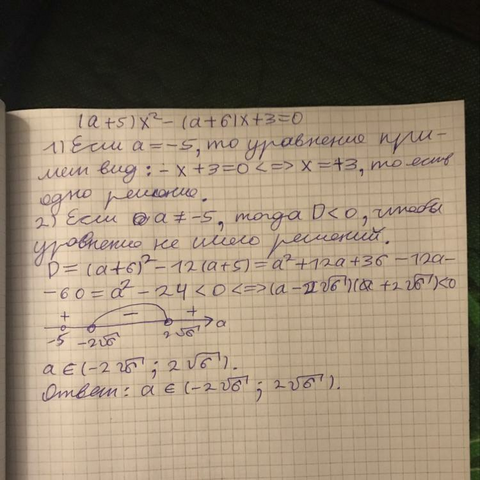 (a+5)x²-(a+6)x+3=0
1) Если a=-5, то уравнение при-
мет вид: -x+3=0 <=> x=+3, то есть
одно решение.
2) Если a≠-5, тогда D<0, чтобы
уравнение не имело решений.
D=(a+6)²-12(a+5)=a²+12a+36-12a-
-60=a²-24<0<=>(a-2√6)(a+2√6)<0
+ - + a
-5 -2√6 2√6
a∈(-2√6; 2√6).
Ответ: a∈(-2√6; 2√6).